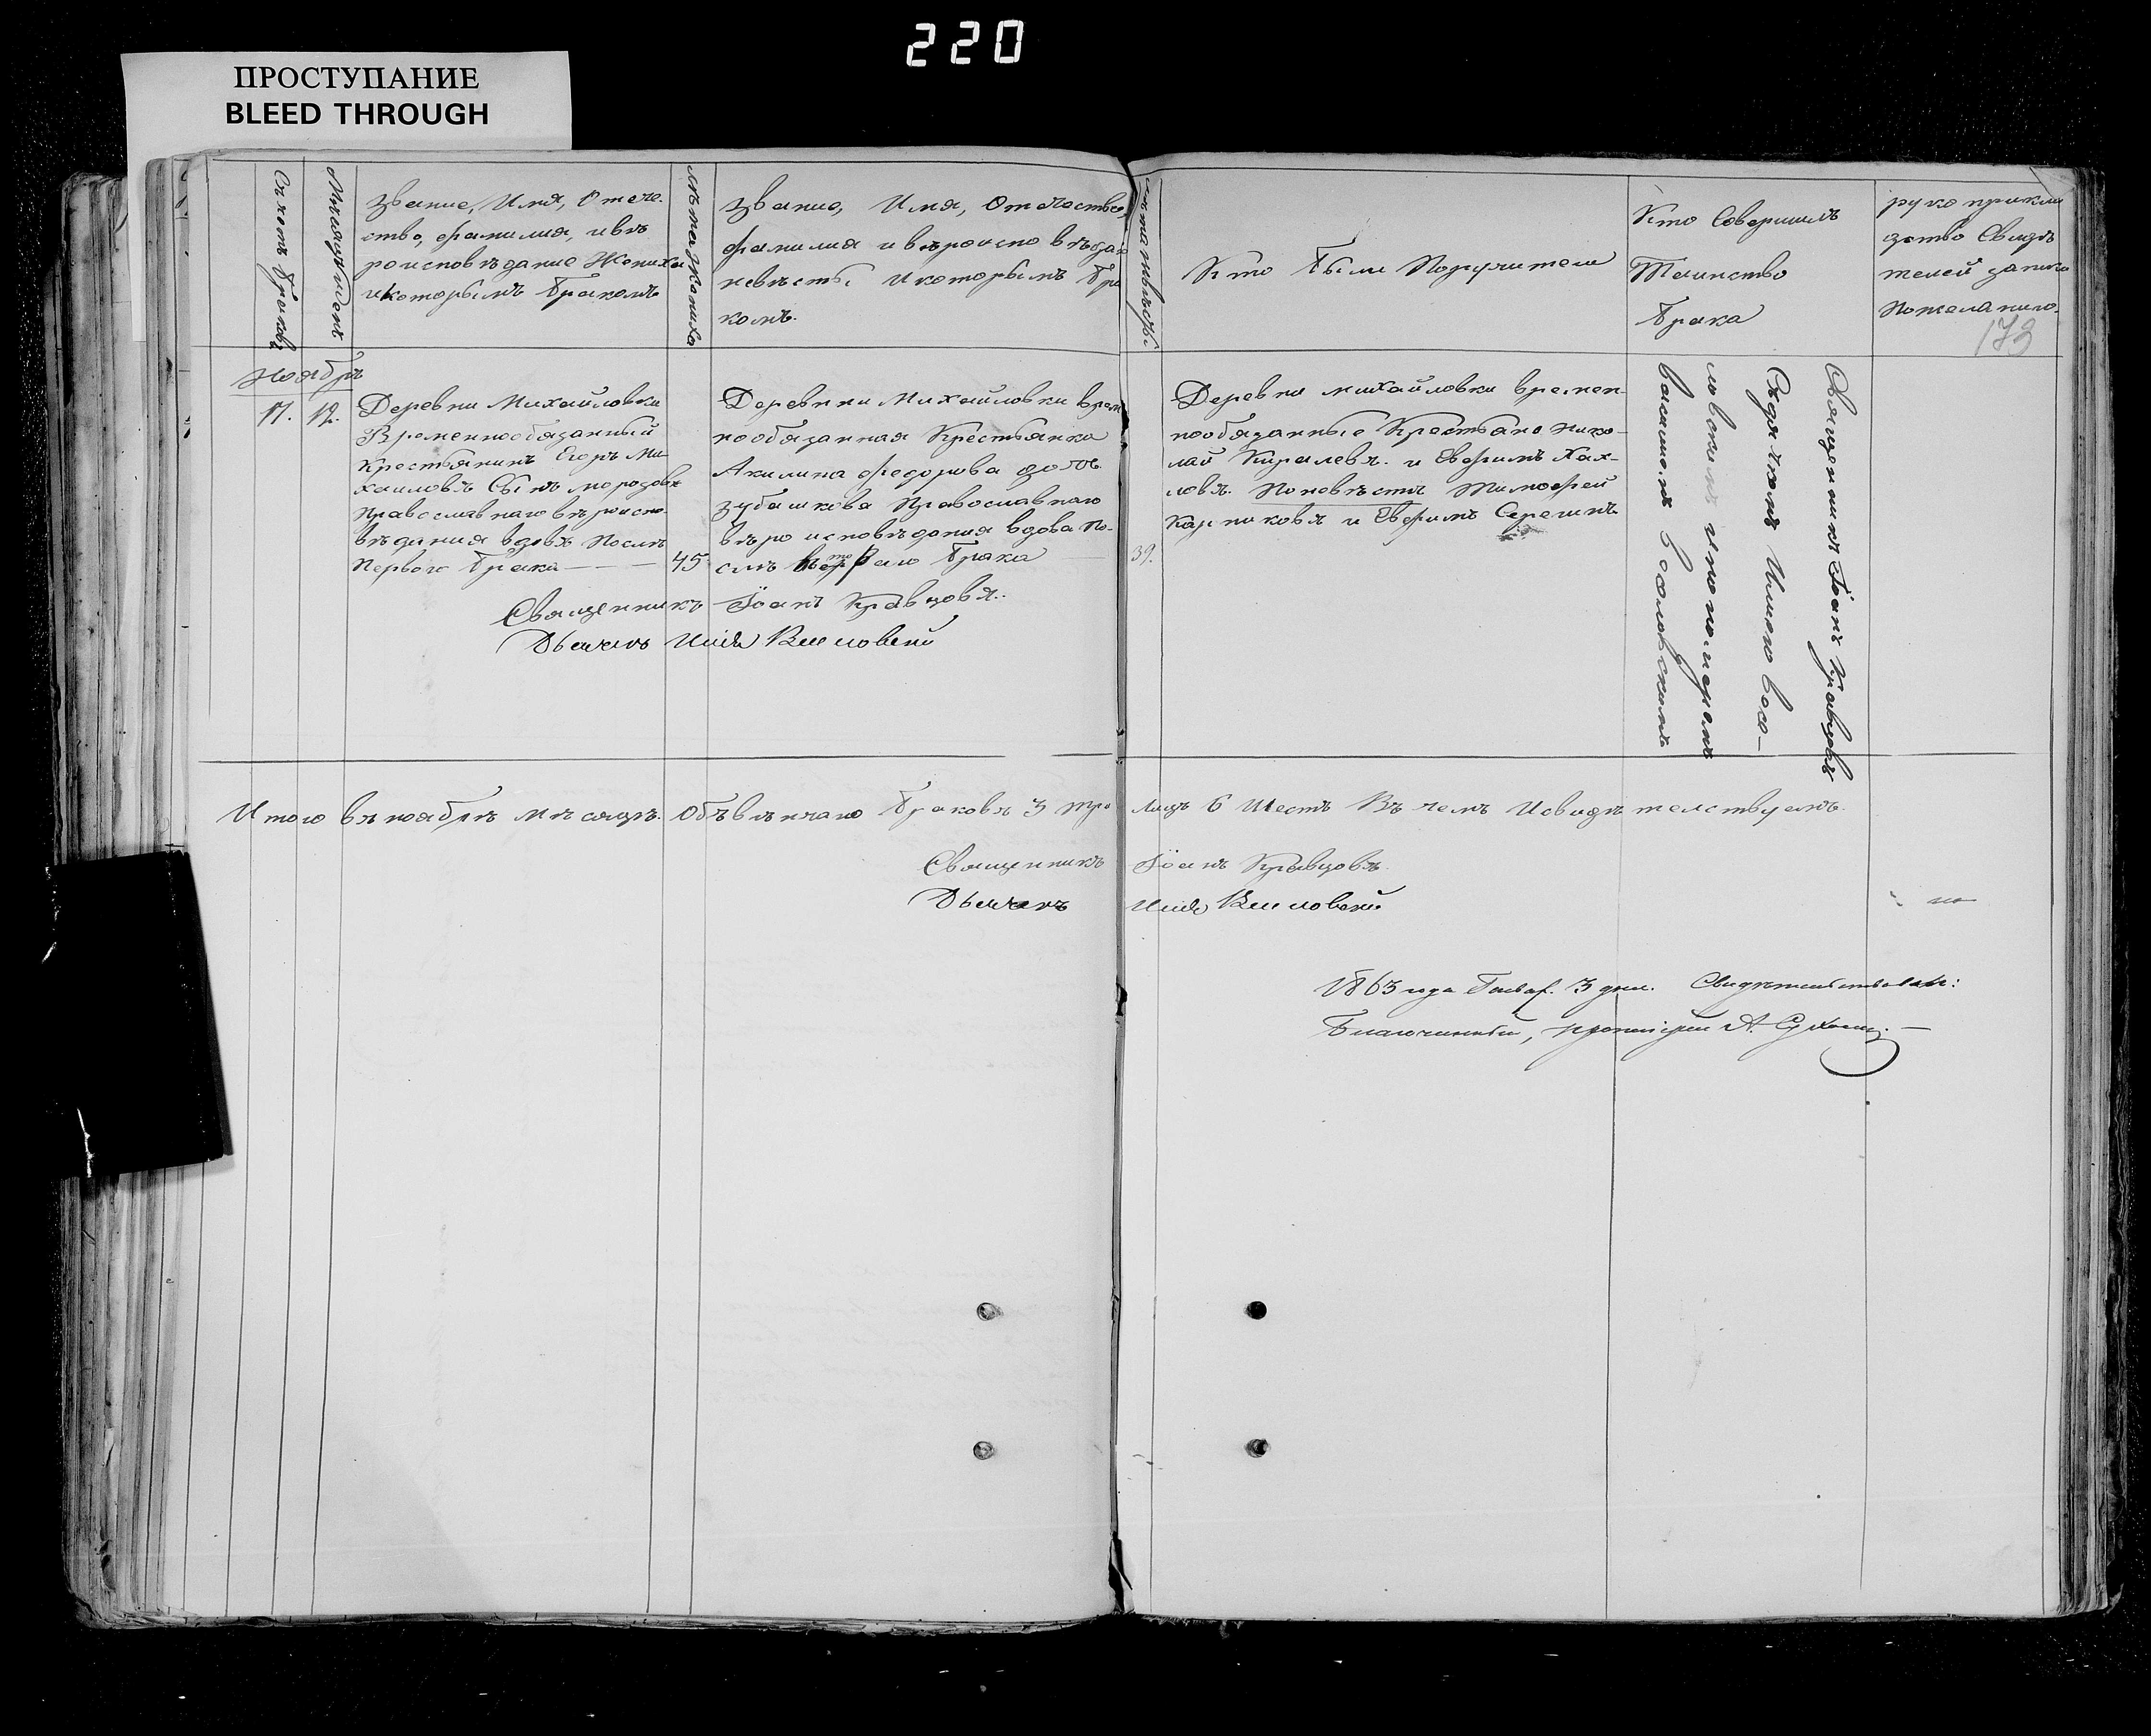 220
ПРОСТУПАНИЕ
BLEED THROUGH
Счетъ браковъ
Мѣсяцъ и день
Звание, Имя, Отече-
ство, фамилия, и вѣ-
роисповѣдание Жениха
и которымъ бракомъ
Лѣта жениха
Звание, Имя, Отечество,
фамилия и вѣроисповѣдан
невѣсты и которымъ бра
комъ.
лѣта невѣсты
Кто были Поручители
Кто Совершилъ
Таинство
брака
рукоприкла
дство Свидѣ
телей записи
По желанию.
179
Ноябрь
17. 12.
Деревни Михайловки
Временнообязанный
крестьянинъ Егоръ Ми-
хаиловъ Сынъ морозовъ
Православнаго вѣроиспо-
вѣдания вдовъ После
Перваго брака
45
Деревни Михайловки врем
нообязанная Крестьянка
Акилина федорова дочь
зубашкова Православнаго
вѣроисповѣдания вдова По-
слѣ втораго брака
39.
Деревни михайловки времен-
нообязанные Крестьяне Нико-
лай Киралевъ. и Ефимъ Хах-
ловъ. По невѣсте Тимофей
Карпиковъ и Ефимъ Серегинъ
Священникъ Іоанъ Кравцовъ
Съ дьячкомъ Ильею Весе-
ловскимъ и пономаремъ
Василиемъ
Священникъ Іоанъ Кравцовъ.
Дьячекъ Илья Веселовский
Итого въ ноябрѣ мѣсяцѣ. Объвѣнчано браковъ 3 три Лицъ 6 Шесть Въ чемъ И свидѣтелствуемъ.
Священникъ Іоанъ Кравцовъ.
Дьячекъ Илья Веселовский
1863 года Генвар. 3 дня. Свидѣтельствовалъ:
Благочинный, протоіерей А.